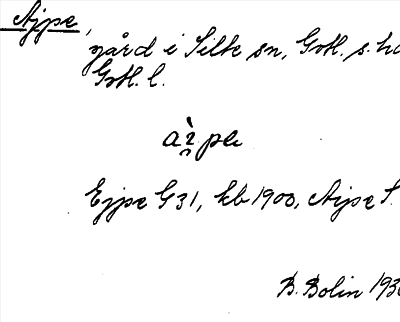 Ajpe,
gård i Silte sn, Gotl. s.
Gotl. l.
Ejpe G 31, kb 1900, Aipe S.
B. Bolin